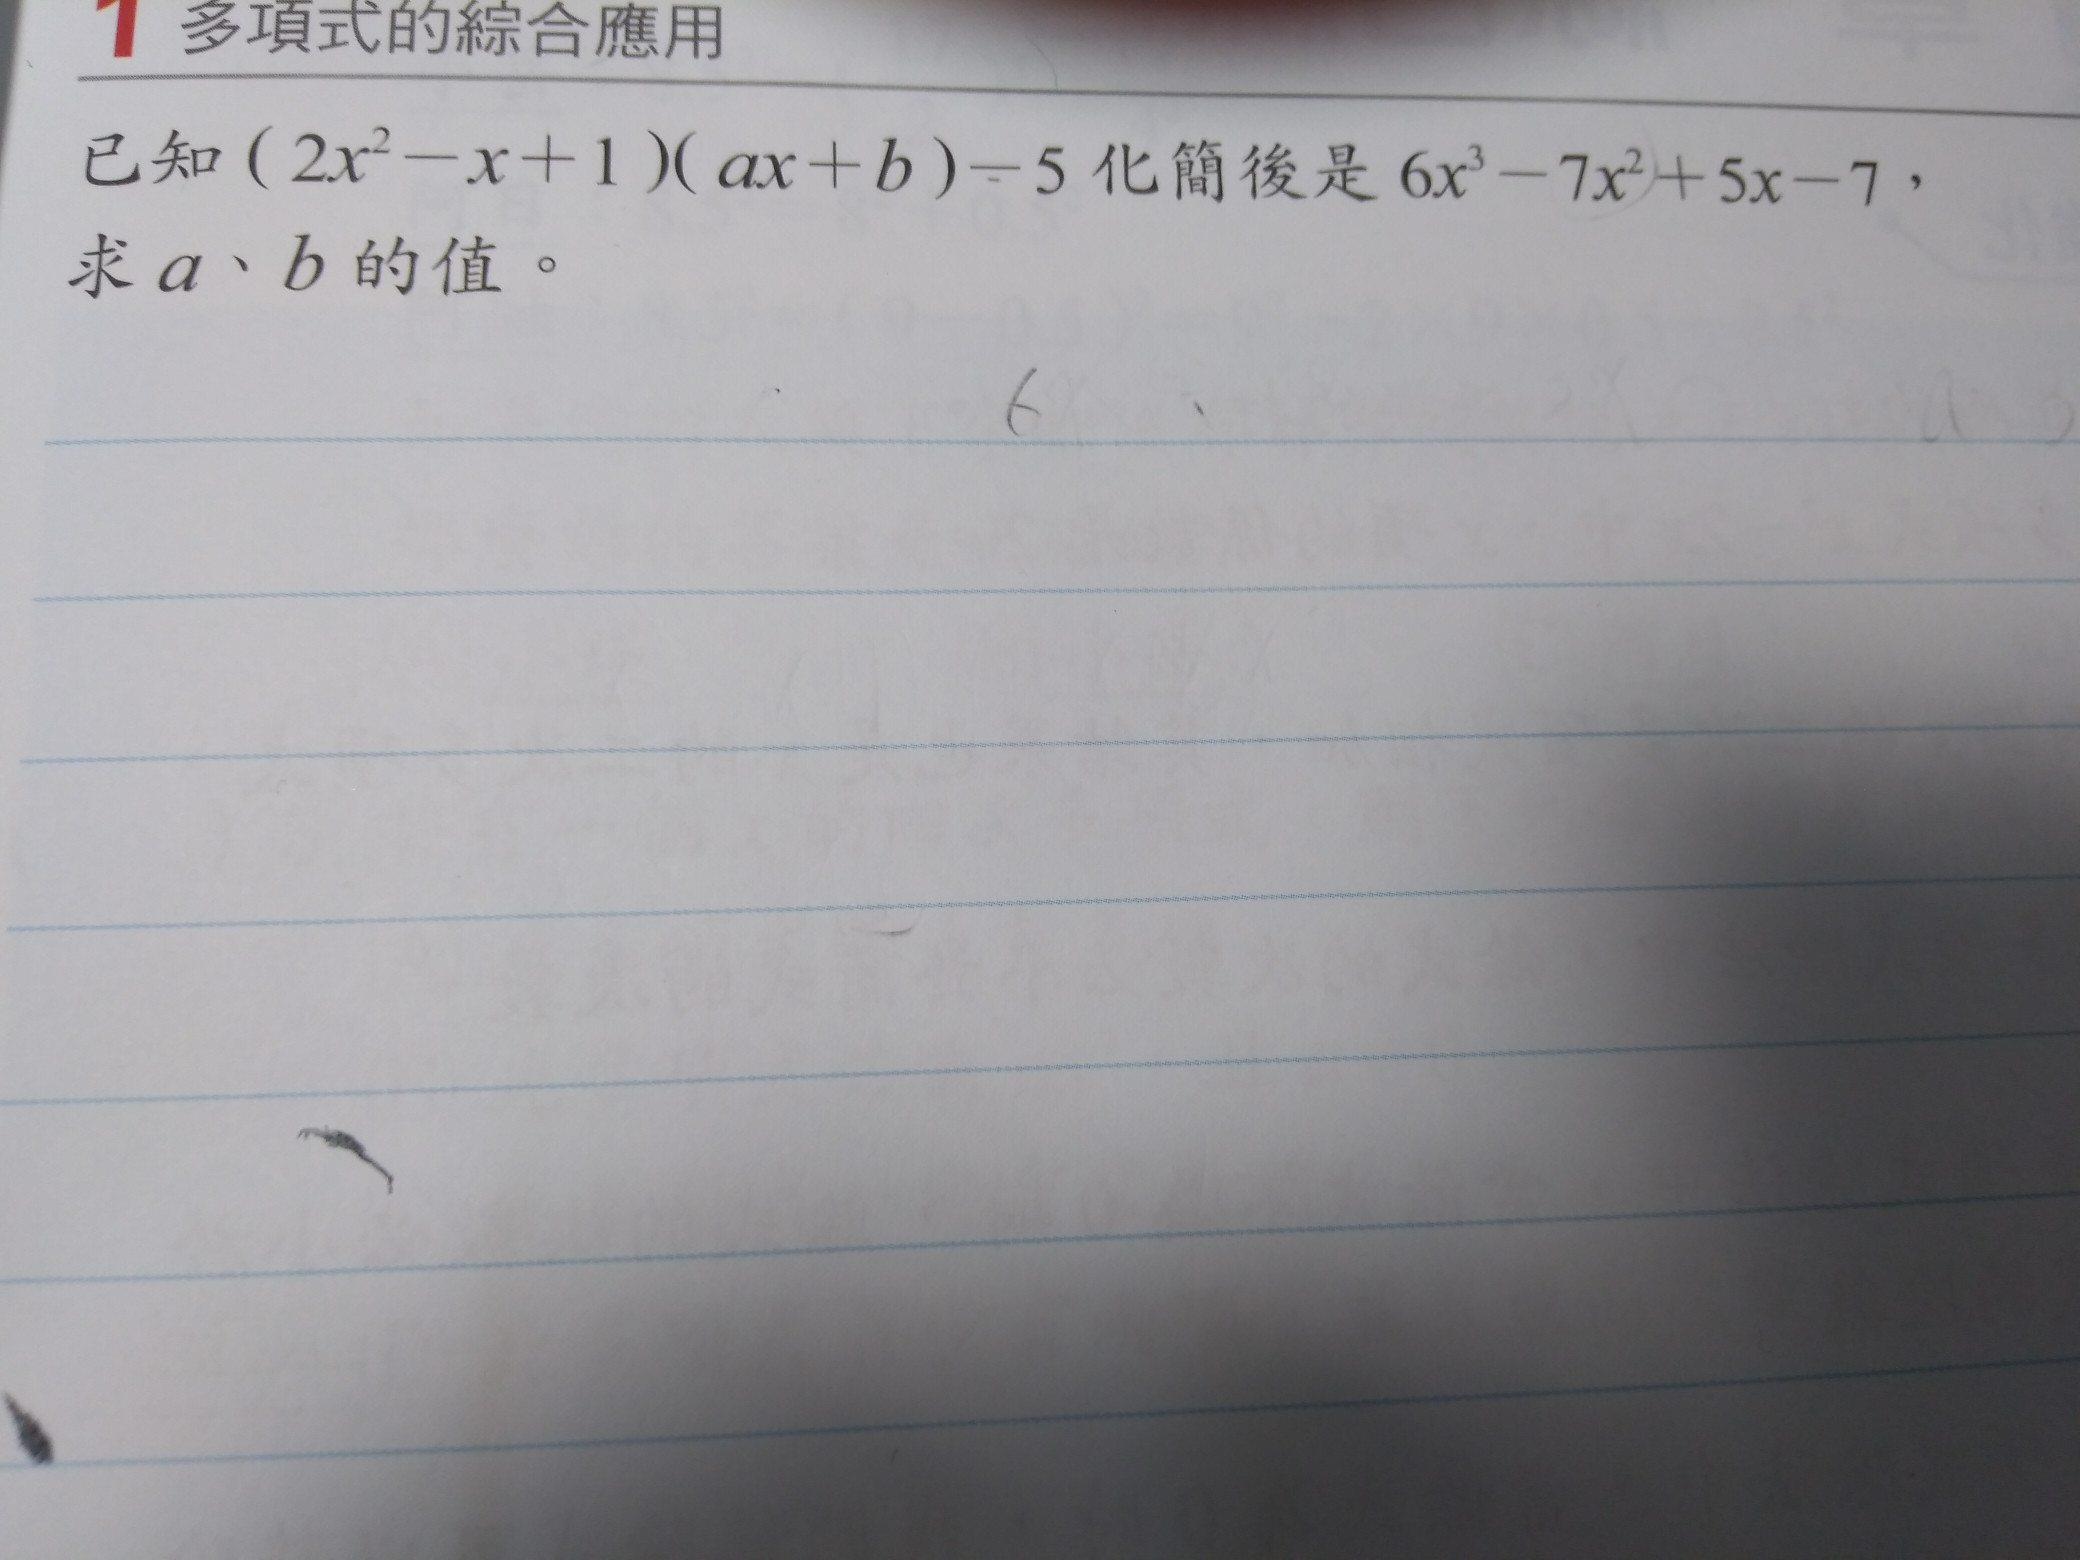 1 多項式的綜合應用
已知(2x²-x+1)(ax+b)-5化簡後是6x³-7x²+5x-7，
求a、b的值。
6